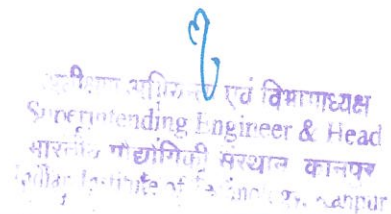 अधीक्षण अभियन्ता एवं विभागाध्यक्ष
Superintending Engineer & Head
भारतीय प्रौद्योगिकी संस्थान कानपुर
Indian Institute of Technology, Kanpur